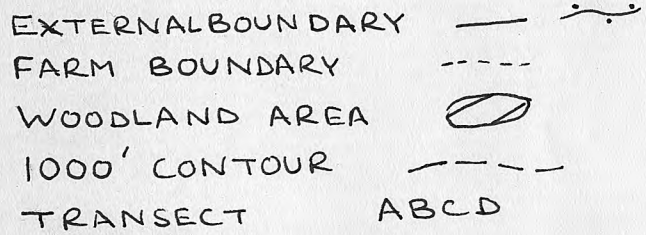 EXTERNAL BOUNDARY
FARM BOUNDARY
WOODLAND AREA
1000' CONTOUR
TRANSECT ABCD